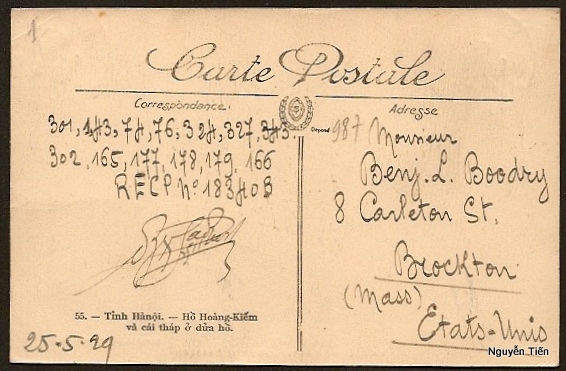 1
Carte Postale
Correspondance.
Adresse
301, 143, 74, 76, 324, 327, 343.
302, 165, 177, 178, 179, 166
RECP Nº 18340B
55. — Tỉnh Hànội. — Hồ Hoàng-Kiếm
và cái tháp ở dửa hồ.
25-5-29
Déposé
987
Monsieur
Benj. L. Boodry
8 Carleton St.
Brockton
(Mass)
Etats-Unis
Nguyễn Tiến